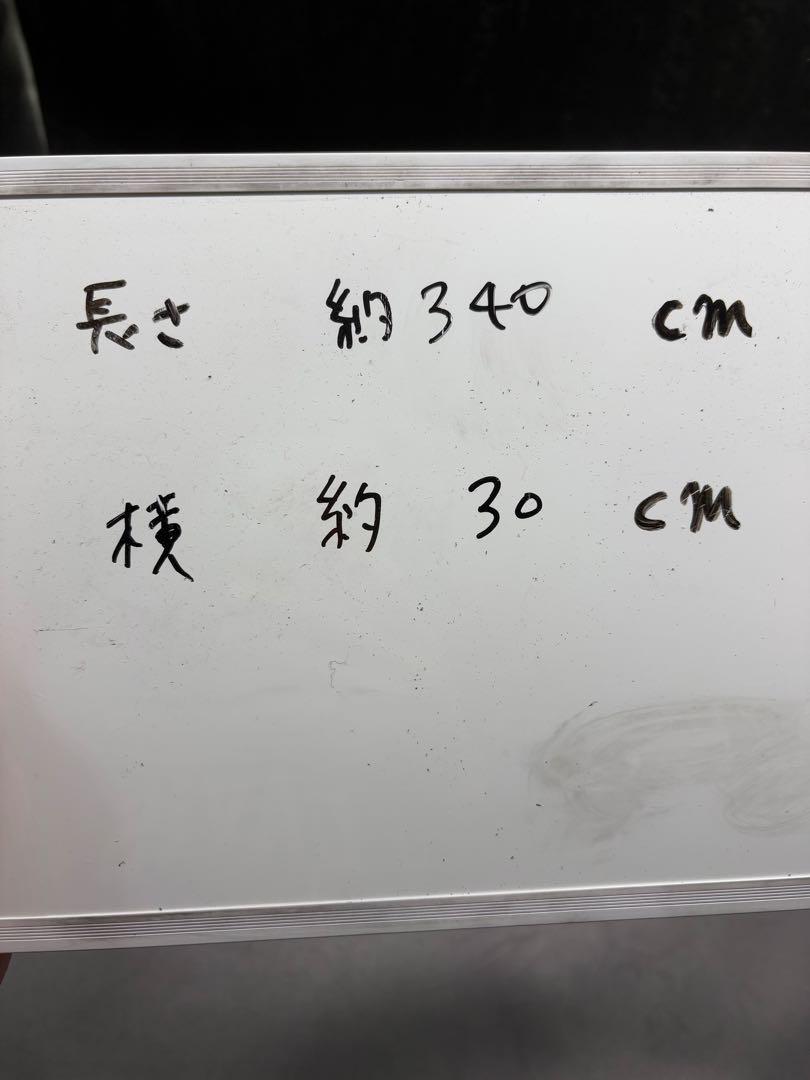 長さ 約340 cm
横 約 30 cm